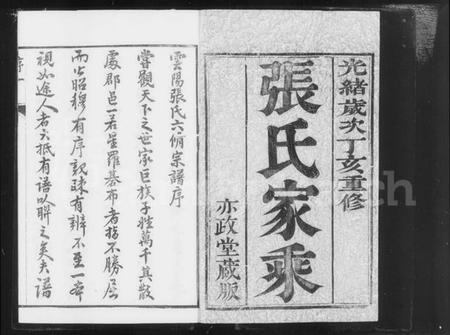 光緒歲次丁亥重修
張氏家乘
亦政堂藏版
雲陽張氏六脩宗譜序
嘗觀天下之世家巨族子姓萬千其散
處郡邑一若星羅棊布者指不勝屈
而必昭穆有序親疎有辨不至一本
視如途人者大抵有譜以聯之矣夫譜